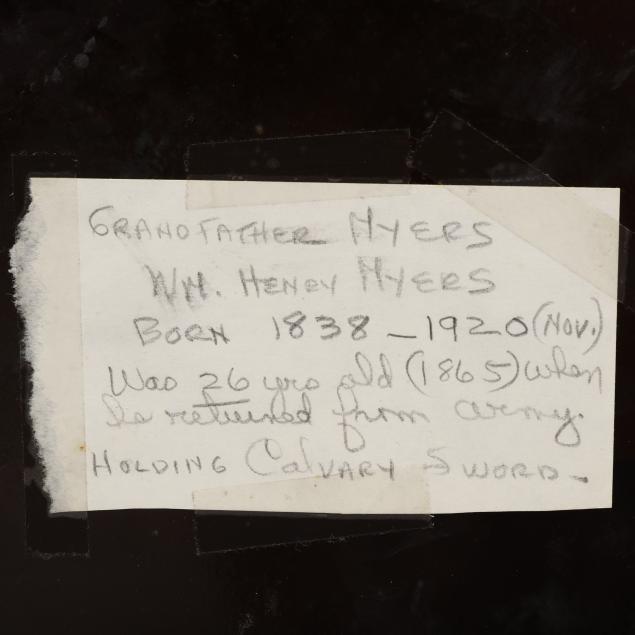 GRANDFATHER MYERS
WM. HENRY MYERS
BORN 1838 - 1920 (NOV.)
Was 26 yrs old (1865) when
he returned from army.
HOLDING CalVARY SWORD -